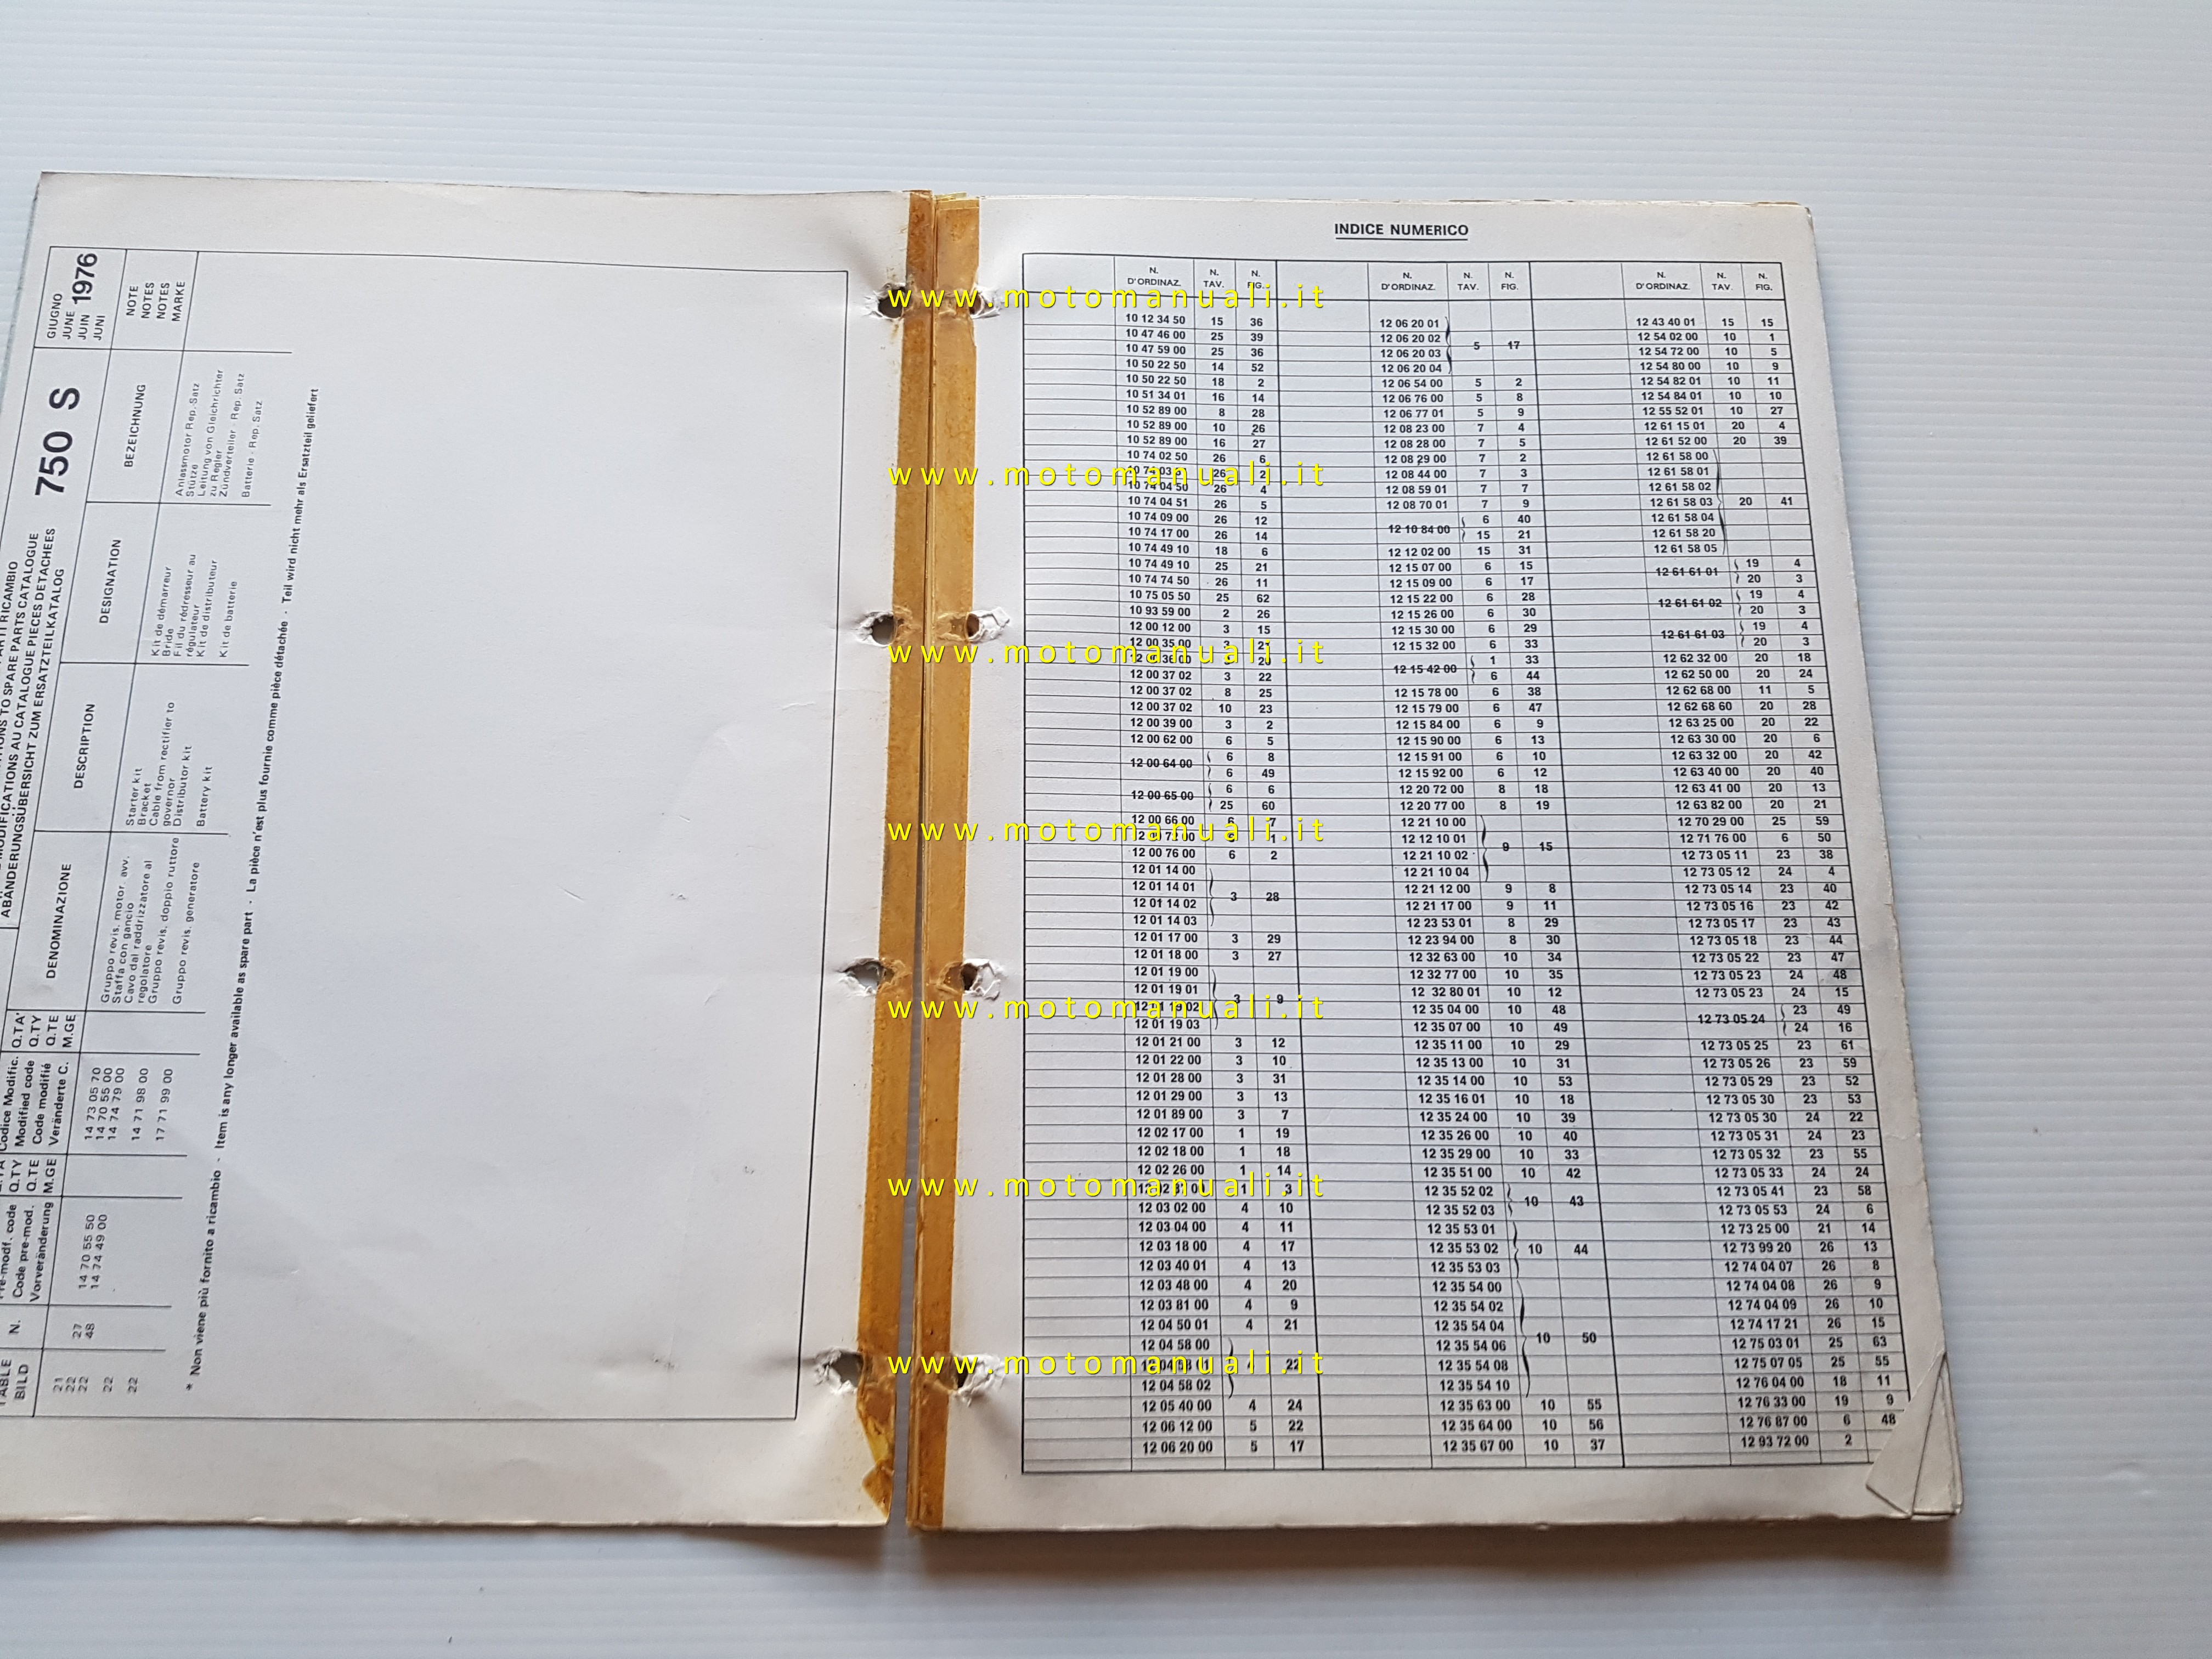 GIUGNO
JUNE 1976
JUIN
JUNI
750 S
MODIFICATIONS TO SPARE PARTS CATALOGUE
MODIFICATIONS AU CATALOGUE PIECES DETACHEES
ABÄNDERUNGSÜBERSICHT ZUM ERSATZTEILKATALOG
TABLE
BILD
N.
Code pre-mod.
Vorveränderung
Q.TY
Q.TE
M.GE
Codice Modific.
Modified code
Code modifié
Veränderte C.
Q.TA'
Q.TY
Q.TE
M.GE
DENOMINAZIONE
DESCRIPTION
DESIGNATION
BEZEICHNUNG
NOTE
NOTES
NOTES
MARKE
21
22 27
22 48
22
22
14 70 55 50
14 74 49 00
14 73 05 70
14 70 55 00
14 74 79 00
14 71 98 00
17 71 99 00
Gruppo revis. motor. avv.
Staffa con gancio
Cavo dal raddrizzatore al
regolatore
Gruppo revis. doppio ruttore
Gruppo revis. generatore
Starter kit
Bracket
Cable from rectifier to
governor
Distributor kit
Battery kit
Kit de démarreur
Bride
Fil du rédresseur au
régulateur
Kit de distributeur
Kit de batterie
Anlassmotor Rep. Satz
Stütze
Leitung von Gleichrichter
zu Regler
Zündverteiler - Rep. Satz
Batterie - Rep. Satz
* Non viene più fornito a ricambio - Item is any longer available as spare part - La pièce n'est plus fournie comme pièce détachée - Teil wird nicht mehr als Ersatzteil geliefert
INDICE NUMERICO
N. D'ORDINAZ. N. TAV. N. FIG.
10 12 34 50 15 36
10 47 46 00 25 39
10 47 59 00 25 36
10 50 22 50 14 52
10 50 22 50 18 2
10 51 34 01 16 14
10 52 89 00 8 28
10 52 89 00 10 26
10 52 89 00 16 27
10 74 02 50 26 6
26 2
10 74 04 50 26 4
10 74 04 51 26 5
10 74 09 00 26 12
10 74 17 00 26 14
10 74 49 10 18 6
10 74 49 10 25 21
10 74 74 50 26 11
10 75 05 50 25 62
10 93 59 00 2 26
12 00 12 00 3 15
12 00 35 00
12 00 37 02 3 22
12 00 37 02 8 25
12 00 37 02 10 23
12 00 39 00 3 2
12 00 62 00 6 5
12 00 64 00 6 8
6 49
12 00 65 00 6 6
25 60
12 00 66 00 6 7
12 00 76 00 6 2
12 01 14 00
12 01 14 01
12 01 14 02
12 01 14 03
3 28
12 01 17 00 3 29
12 01 18 00 3 27
12 01 19 00
12 01 19 01
12 01 19 02
12 01 19 03
3 9
12 01 21 00 3 12
12 01 22 00 3 10
12 01 28 00 3 31
12 01 29 00 3 13
12 01 89 00 3 7
12 02 17 00 1 19
12 02 18 00 1 18
12 02 26 00 1 14
1 3
12 03 02 00 4 10
12 03 04 00 4 11
12 03 18 00 4 17
12 03 40 01 4 13
12 03 48 00 4 20
12 03 81 00 4 9
12 04 50 01 4 21
12 04 58 00
12 04 58 01
12 04 58 02
22
12 05 40 00 4 24
12 06 12 00 5 22
12 06 20 00 5 17
N. D'ORDINAZ. N. TAV. N. FIG.
12 06 20 01
12 06 20 02
12 06 20 03
12 06 20 04
5 17
12 06 54 00 5 2
12 06 76 00 5 8
12 06 77 01 5 9
12 08 23 00 7 4
12 08 28 00 7 5
12 08 29 00 7 2
12 08 44 00 7 3
12 08 59 01 7 7
12 08 70 01 7 9
12 10 84 00 6 40
15 21
12 12 02 00 15 31
12 15 07 00 6 15
12 15 09 00 6 17
12 15 22 00 6 28
12 15 26 00 6 30
12 15 30 00 6 29
12 15 32 00 6 33
12 15 42 00 1 33
6 44
12 15 78 00 6 38
12 15 79 00 6 47
12 15 84 00 6 9
12 15 90 00 6 13
12 15 91 00 6 10
12 15 92 00 6 12
12 20 72 00 8 18
12 20 77 00 8 19
12 21 10 00
12 12 10 01
12 21 10 02
12 21 10 04
9 15
12 21 12 00 9 8
12 21 17 00 9 11
12 23 53 01 8 29
12 23 94 00 8 30
12 32 63 00 10 34
12 32 77 00 10 35
12 32 80 01 10 12
12 35 04 00 10 48
12 35 07 00 10 49
12 35 11 00 10 29
12 35 13 00 10 31
12 35 14 00 10 53
12 35 16 01 10 18
12 35 24 00 10 39
12 35 26 00 10 40
12 35 29 00 10 33
12 35 51 00 10 42
12 35 52 02
12 35 52 03
10 43
12 35 53 01
12 35 53 02
12 35 53 03
10 44
12 35 54 00
12 35 54 02
12 35 54 04
12 35 54 06
12 35 54 08
12 35 54 10
10 50
12 35 63 00 10 55
12 35 64 00 10 56
12 35 67 00 10 37
N. D'ORDINAZ. N. TAV. N. FIG.
12 43 40 01 15 15
12 54 02 00 10 1
12 54 72 00 10 5
12 54 80 00 10 9
12 54 82 01 10 11
12 54 84 01 10 10
12 55 52 01 10 27
12 61 15 01 20 4
12 61 52 00 20 39
12 61 58 00
12 61 58 01
12 61 58 02
12 61 58 03 20 41
12 61 58 04
12 61 58 20
12 61 58 05
12 61 61 01 19 4
20 3
12 61 61 02 19 4
20 3
12 61 61 03 19 4
20 3
12 62 32 00 20 18
12 62 50 00 20 24
12 62 68 00 11 5
12 62 68 60 20 28
12 63 25 00 20 22
12 63 30 00 20 6
12 63 32 00 20 42
12 63 40 00 20 40
12 63 41 00 20 13
12 63 82 00 20 21
12 70 29 00 25 59
12 71 76 00 6 50
12 73 05 11 23 38
12 73 05 12 24 4
12 73 05 14 23 40
12 73 05 16 23 42
12 73 05 17 23 43
12 73 05 18 23 44
12 73 05 22 23 47
12 73 05 23 24 48
12 73 05 23 24 15
12 73 05 24 23 49
24 16
12 73 05 25 23 61
12 73 05 26 23 59
12 73 05 29 23 52
12 73 05 30 23 53
12 73 05 30 24 22
12 73 05 31 24 23
12 73 05 32 23 55
12 73 05 33 24 24
12 73 05 41 23 58
12 73 05 53 24 6
12 73 25 00 21 14
12 73 99 20 26 13
12 74 04 07 26 8
12 74 04 08 26 9
12 74 04 09 26 10
12 74 17 21 26 15
12 75 03 01 25 63
12 75 07 05 25 55
12 76 04 00 18 11
12 76 33 00 19 9
12 76 87 00 6 48
12 93 72 00 2
www.motomanuali.it
www.motomanuali.it
www.motomanuali.it
www.motomanuali.it
www.motomanuali.it
www.motomanuali.it
www.motomanuali.it